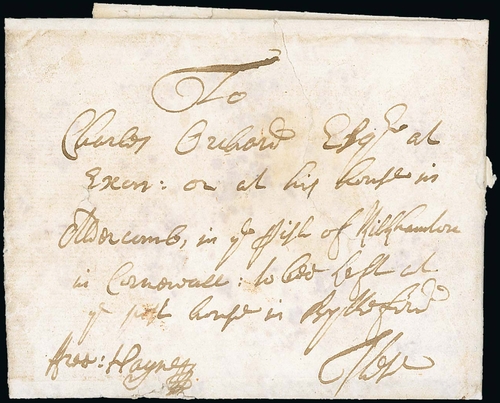 To
Charles Orchard Esqr at
Exon: or at his house in
Aldercomb, in ye pish of Kilkhamton
in Cornewall: to bee left at
ye post house in Bytheford
ffree: Hayne
These